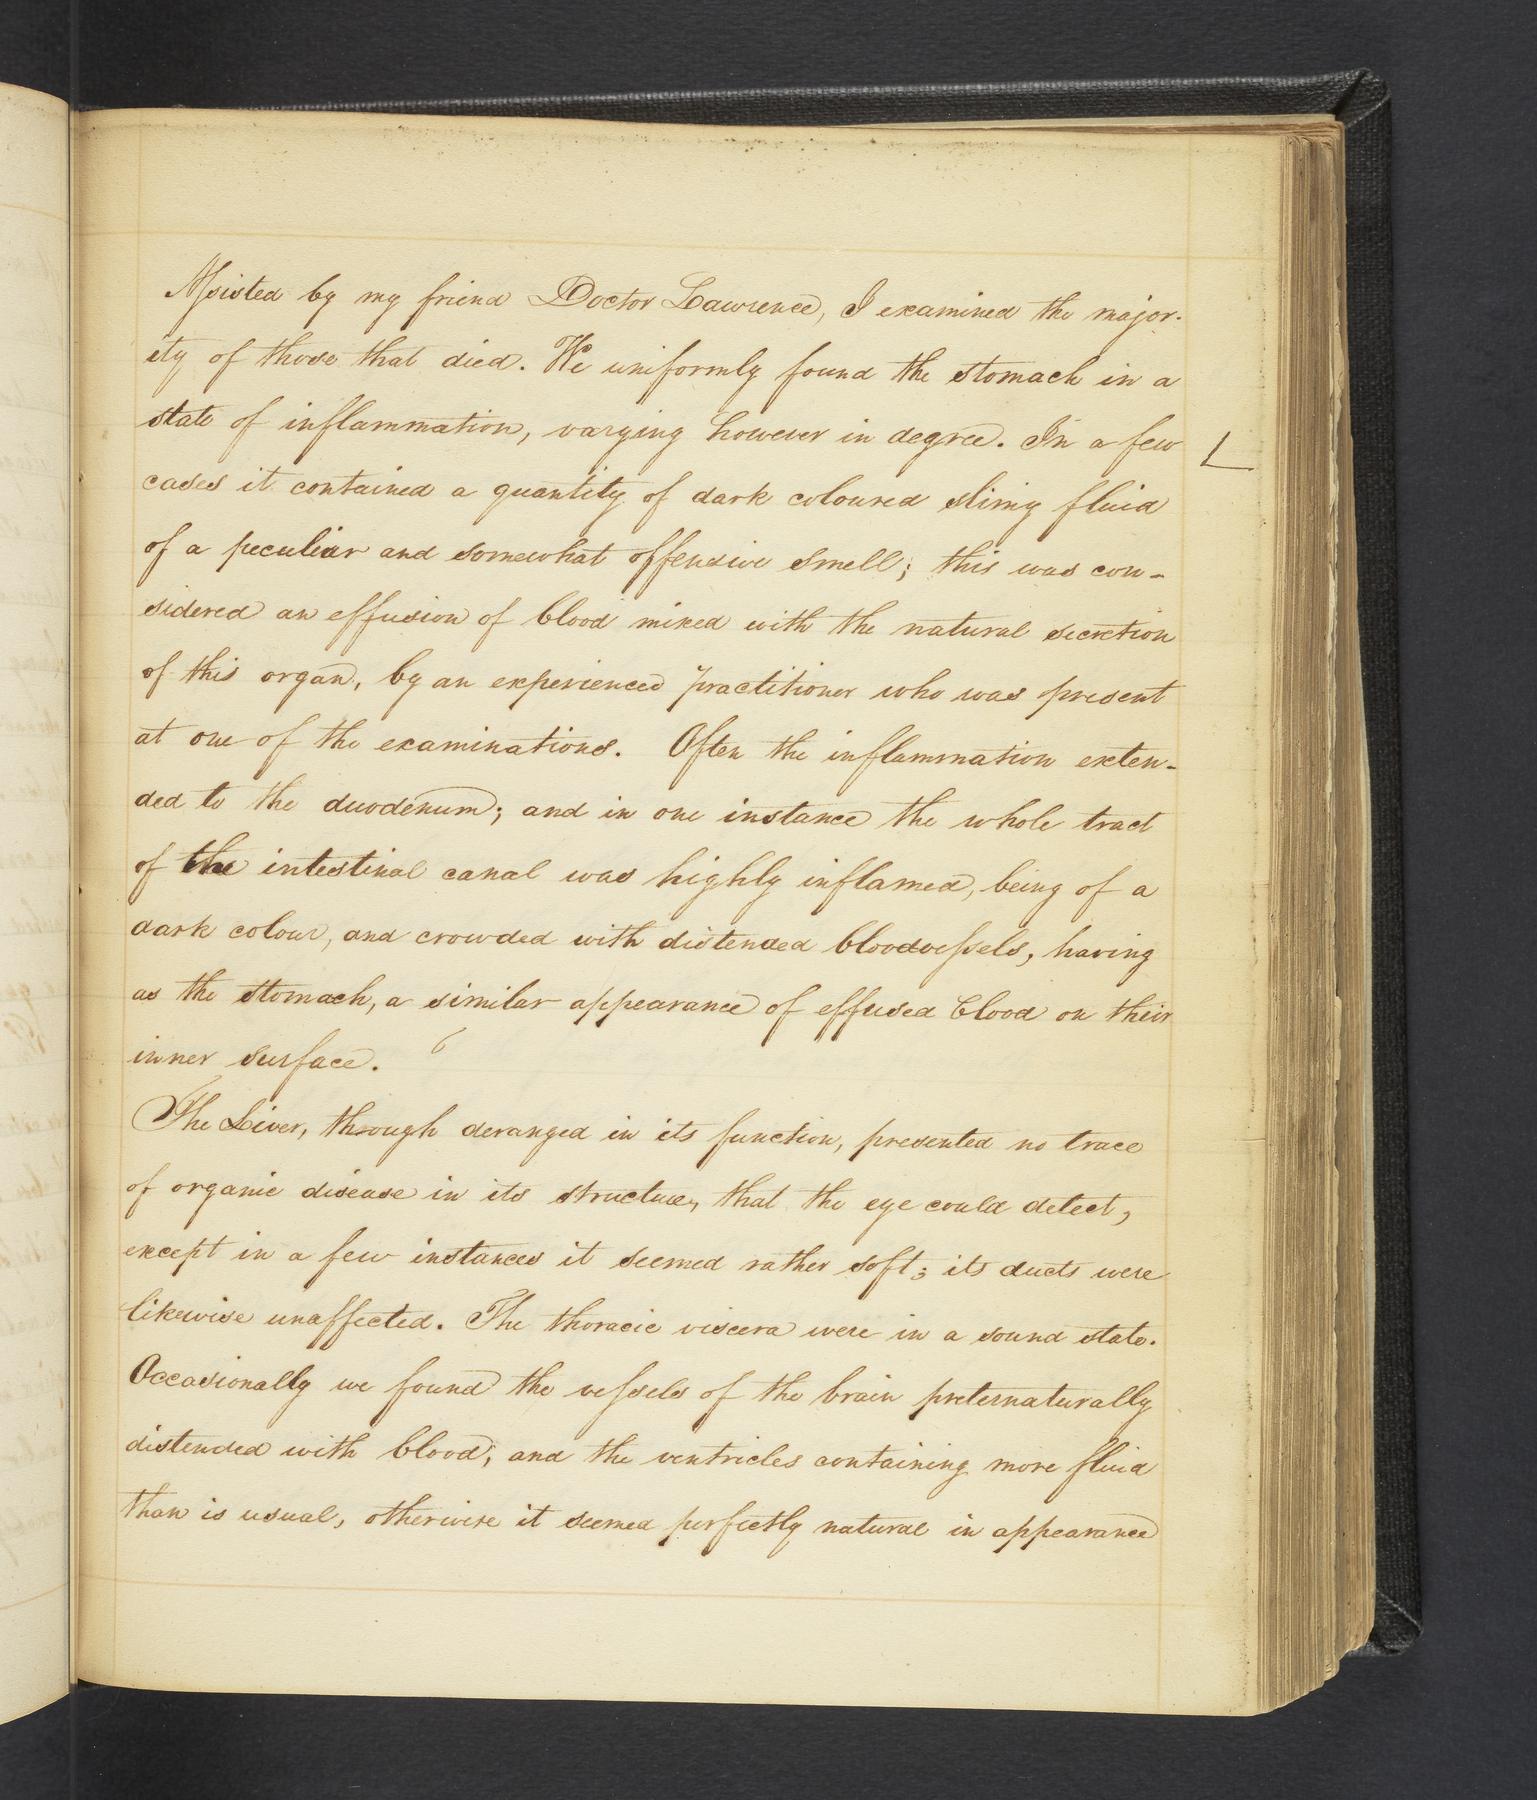 Assisted by my friend Doctor Lawrence, I examined the major-
ity of those that died. We uniformly found the stomach in a
state of inflammation, varying however in degree. In a few
cases it contained a quantity of dark coloured slimy fluid
of a peculiar and somewhat offensive smell; this was con-
sidered an effusion of blood mixed with the natural secretion
of this organ, by an experienced practitioner who was present
at one of the examinations. Often the inflammation exten-
ded to the duodenum; and in one instance the whole tract
of the intestinal canal was highly inflamed, being of a
dark colour, and crowded with distended bloodvessels, having
as the stomach, a similar appearance of effused blood on their
inner surface.
The Liver, through deranged in its function, presented no trace
of organic disease in its structure, that the eye could detect,
except in a few instances it seemed rather soft; its ducts were
likewise unaffected. The thoracic viscera were in a sound state.
Occasionally we found the vessels of the brain preternaturally
distended with blood; and the ventricles containing more fluid
than is usual, otherwise it seemed perfectly natural in appearance